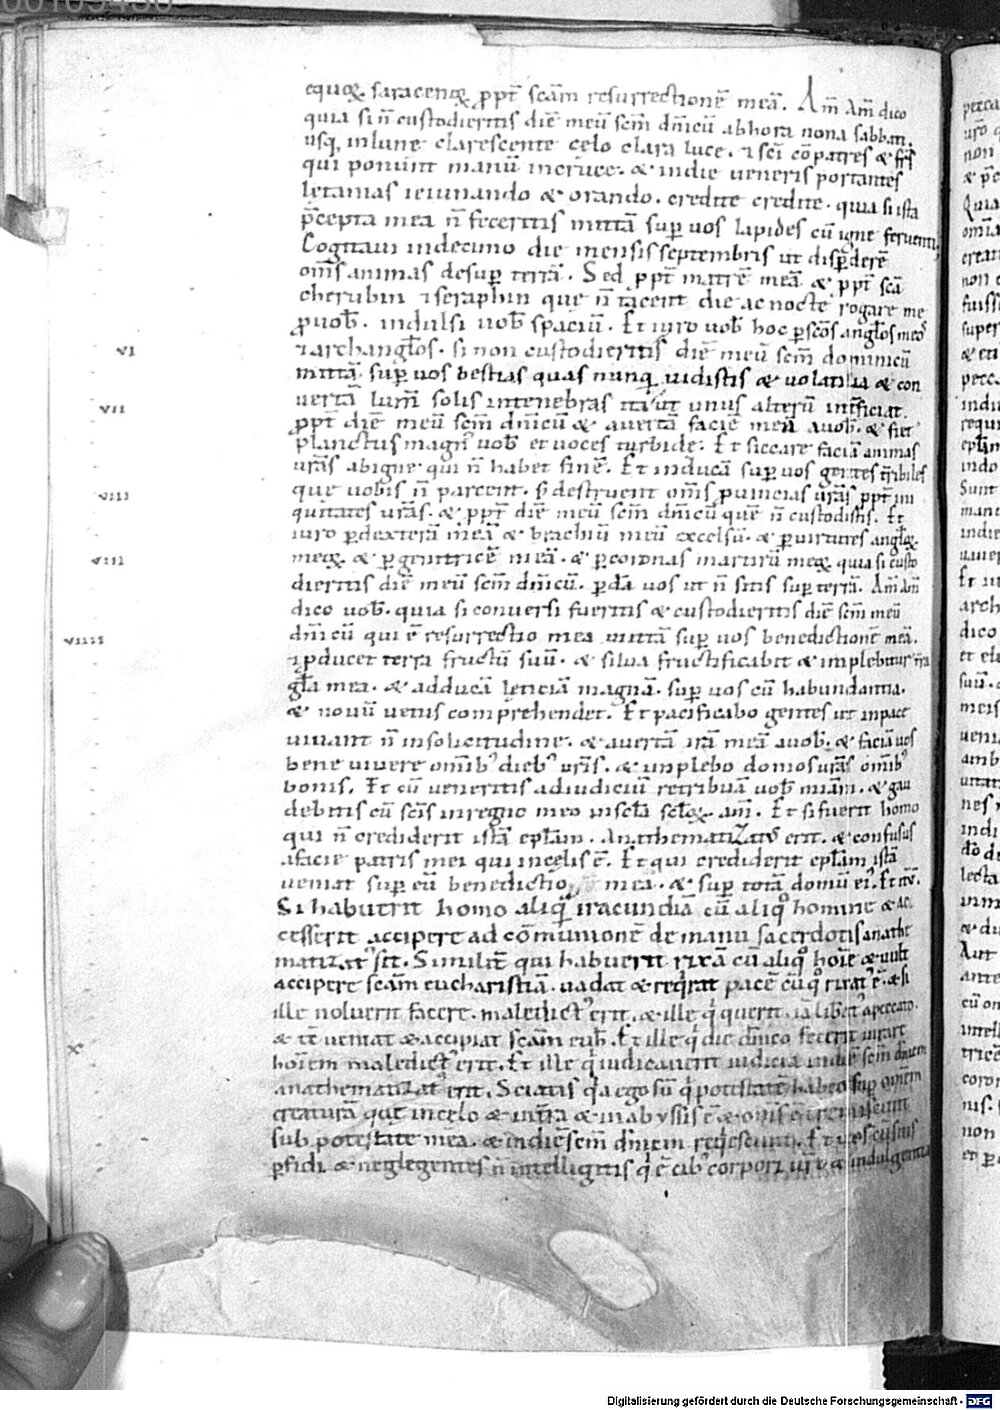 equoꝝ saracenoꝝ ꝓpt̄ scām resurrectionē meā. Am̄ Am̄ dico
quia si n̄ custodieritis diē meū scm̄ dn̄icū abhora nona sabbati
usq; inlune clarescente celo clara luce. ⁊ sci cōpatres & frs̄
qui ponunt manū incruce. & indie ueneris portantes
letanias ieiunando & orando. credite credite. quia si ista
p̄cepta mea n̄ feceritis mittā suꝑ uos lapides cū igne feruenti
Cogitaui indecimo die mensis septembris ut disꝑderē
om̄s animas desuꝑ terrā. Sed ꝓpt̄ matrē meā & ꝓpt̄ scā
cherubin ⁊ seraphin que n̄ tacent die ac nocte rogare me
ꝓ uob̄. indulsi uob̄ spaciū. Et iuro uob̄ hoc ꝑ scōs angl̄os meos
VI ⁊ archangl̄os. si non custodieritis diē meū scm̄ dominicū
mittā suꝑ uos bestias quas nunq̄ uidistis & uolatilia & con
VII uertā lum̄ solis intenebras ita ut unus alterū int̄ficiat.
ꝓpt̄ diē meū scm̄ dn̄icū & auertā faciē meā auob̄. & fiet
planctus magn' uob̄ et uoces turbide. Et siccare faciā animas
ur̄as abigne qui n̄ habet finē. Et inducā suꝑ uos gentes t̄ribiles
VIII que uobis n̄ parcent. s; destruent om̄s ꝓuincias ur̄as ꝓpt̄ ini
quitates ur̄as. & ꝓpt̄ diē meū scm̄ dn̄icū quē n̄ custodistis. Et
iuro ꝑ dexterā meā & brachiū meū excelsū. & ꝑ uirtutes angl̄oꝝ
VIII meoꝝ & ꝑ genitricē meā. & ꝑ coronas martirū meoꝝ quia si custo
dieritis diē meū scm̄ dn̄icū. ꝑdā uos ut n̄ sitis suꝑ terrā. Am̄ Am̄
dico uob̄. quia si conuersi fueritis & custodieritis diē scm̄ meū
VIIII dn̄icū qui ē resurrectio mea mittā suꝑ uos benedictionē meā.
⁊ ꝓducet terra fructū suū. & silua fructificabit & implebitur t̄ra
gl̄a mea. & adducā leticiā magnā. suꝑ uos cū habundantia.
& nouū uetus comprehendet. Et pacificabo gentes ut inpace
uiuant n̄ insolicitudine. & auertā irā meā auob̄. & faciā uos
bene uiuere omīb' dieb' ur̄is. & implebo domos ur̄as omīb'
bonis. Et cū ueneritis adiudiciū retribuā uob̄ miām. & gau
debitis cū scīs inregno meo inscl̄a scl̄oꝝ. am̄. Et si fuerit homo
qui n̄ crediderit istā epl̄am. Anathematizatus erit. & confusus
afacie patris mei qui incelis ē. Et qui crediderit epl̄am istā
ueniat suꝑ eū benedictio mea. & suꝑ totā domū ei'. Et itē.
Si habuerit homo aliq̄ iracundiā cū aliq° homine & ac
cesserit accipere ad cōmunionē de manu sacerdotis anathe
matizat' sit. Similit̄ qui habuerit rixā cū aliq° hoīe & uult
accipere scām eucharistiā. uadat & req̄rat pacē cū q° rixat' ē. & si
ille noluerit facere. maledict' erit. & ille q' querit. iā libat' apeccato.
X & tē ueniat & accipiat scām euh̄. Et ille q' die dn̄ico fecerit iurare
hoīem maledict' erit. Et ille q' iudicauerit iudicia indiē scm̄ dn̄icum
anathematizat' erit. Sciatis q'a ego sū q' potestatē habeo suꝑ omnem
creaturā que incelo & int̄ra & inabyssis ē &
sub potestate mea. & indiē scm̄ dn̄icum
ꝑfidi & neglegentes n̄ intelligitis q' ē cib' corpori & indulgentia